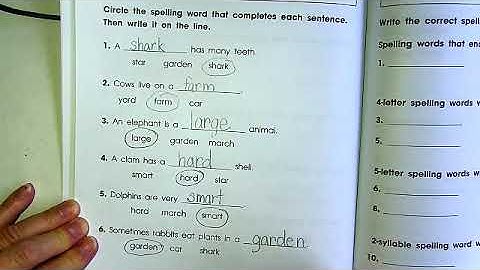 Circle the spelling word that completes each sentence.
Then write it on the line.
1. A shark has many teeth.
star garden shark
2. Cows live on a farm.
yard farm car
3. An elephant is a large animal.
large garden march
4. A clam has a hard shell.
smart hard star
5. Dolphins are very smart.
hard march smart
6. Sometimes rabbits eat plants in a garden
garden car shark
Write the correct spell
Spelling words that en
1.
4-letter spelling words w
3.
5-letter spelling words w
6.
8.
2-syllable spelling word w
10.